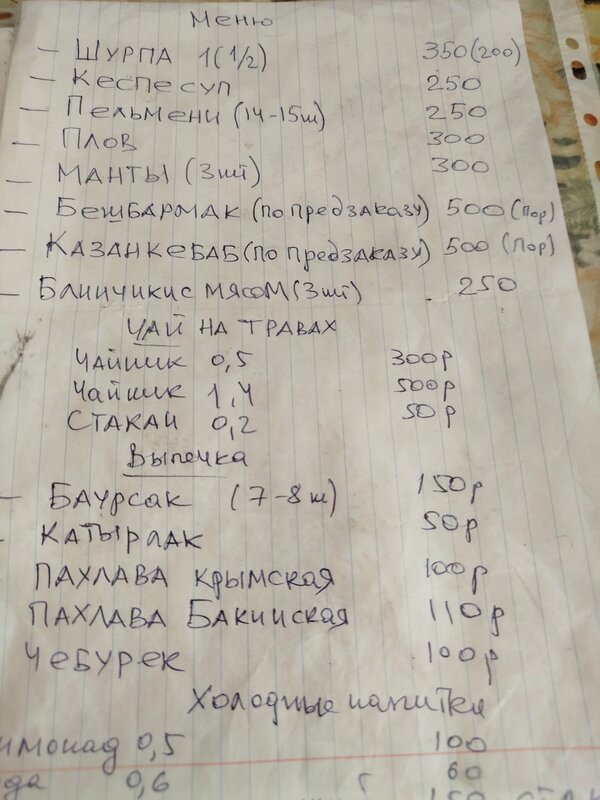 Меню
– Шурпа 1(1/2) 350(200)
– Кеспе суп 250
– Пельмени (14-15ш) 250
– Плов 300
– Манты (3шт) 300
– Бешбармак (по предзаказу) 500 (пор)
– Казан кебаб (по предзаказу) 500 (пор)
– Блинчики с мясом (3шт) 250
Чай на травах
Чайник 0,5 300р
Чайник 1,4 500р
Стакан 0,2 50р
Выпечка
– Баурсак (7-8ш) 150р
– Катырлак 50р
Пахлава Крымская 100р
Пахлава Бакинская 110р
Чебурек 100р
Холодные напитки
имонад 0,5 100
да 0,6 60